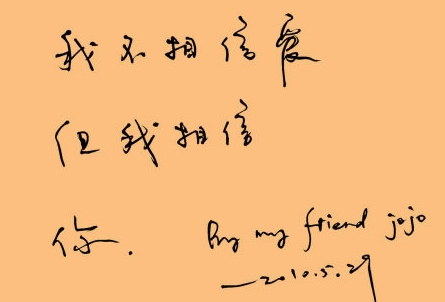 我不相信爱
但我相信
你.
By my friend jojo
—2010.5.29